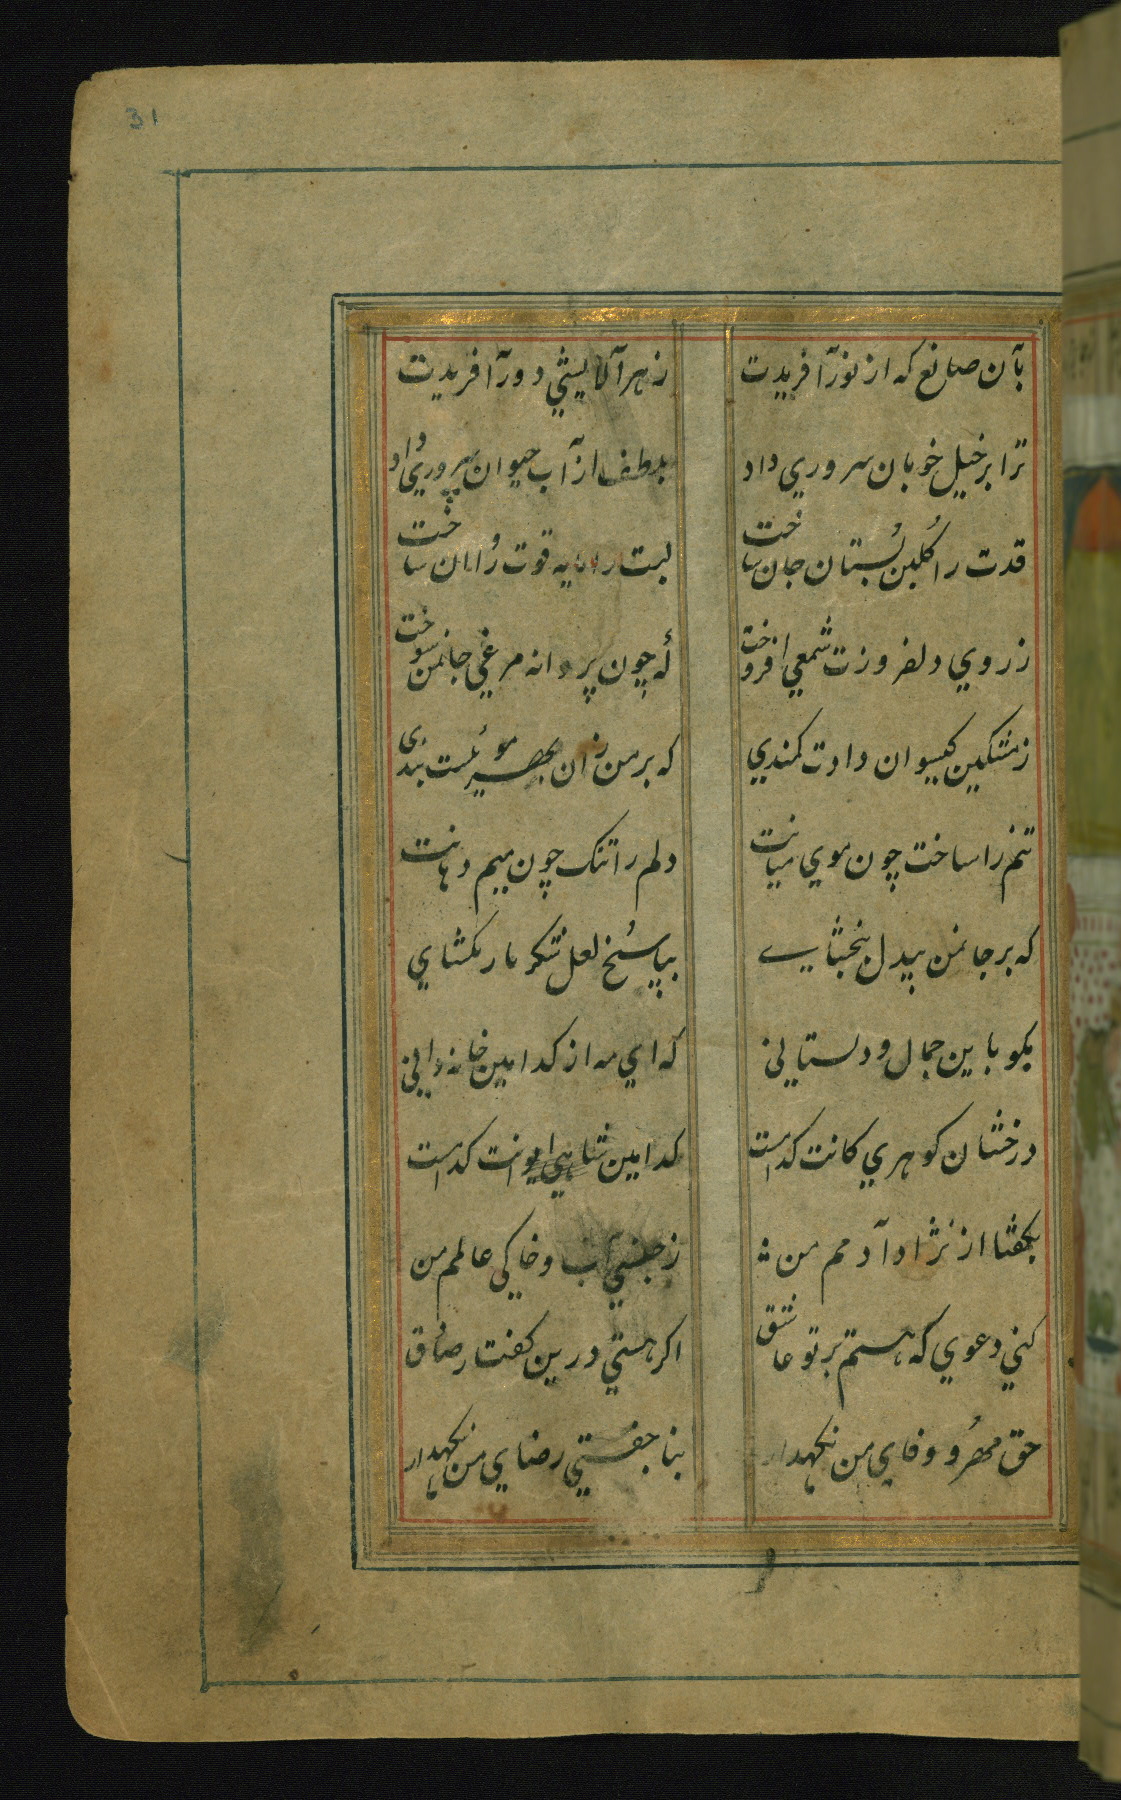 31
بآن صانع که از نور آفریدت
ز هر آلایشي دور آفریدت
ترا بر خیل خوبان سروري داد
بلطف از آب حیوان پروري داد
قدت را گلبن بُستان جان ساخت
لبت را مایه قوت رُوان ساخت
ز روي دلفروزت شمعي افروخت
که چون پروانه مرغي جانمن سوخت
ز مشکین کیسوان دادت کمندي
که بر من زان بهر موئست بندی
تنم را ساخت چون موي میانت
دلم را تنک چون میم دهانت
که بر جانمن بیدل ببخشایے
بپاسُخ لعل شکر بار بکشاي
بکو با این جمال و دلستانی
که اي مه از کدامین خانه دانی
درخشان کوهري کانت کدامست
کدامین شاهي ایوانت کدامست
بکفتا از نژاد آدمم من
ز جنسي آب و خاکي عالمم من
کني دعوي که هستم بر تو عاشق
اکر هستي درین کفتار صادق
حق مهرُ و وفاي من نکهدار
بنا جفتي رضاي من نکهدار